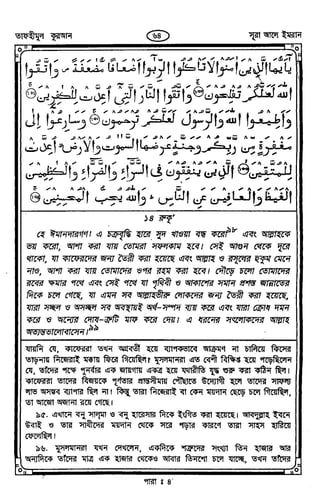 তাফহীমুল কুরআন
৬৪
সূরা আলে ইমরান
يٰٓاَيُّهَا الَّذِيْنَ اٰمَنُوْا لَا تَاْكُلُوا الرِّبٰٓوا اَضْعَافًا مُّضٰعَفَةً ۪ وَاتَّقُوا
اللّٰهَ لَعَلَّكُمْ تُفْلِحُوْنَ ۚ وَاتَّقُوا النَّارَ الَّتِيْٓ اُعِدَّتْ لِلْكٰفِرِيْنَ ۚ
وَاَطِيْعُوا اللّٰهَ وَالرَّسُوْلَ لَعَلَّكُمْ تُرْحَمُوْنَ ۚ وَسَارِعُوْٓا اِلٰى
مَغْفِرَةٍ مِّنْ رَّبِّكُمْ وَجَنَّةٍ عَرْضُهَا السَّمٰوٰتُ وَالْاَرْضُ ۙ اُعِدَّتْ
لِلْمُتَّقِيْنَ ۙ الَّذِيْنَ يُنْفِقُوْنَ فِي السَّرَّآءِ وَالضَّرَّآءِ وَالْكٰظِمِيْنَ
الْغَيْظَ وَالْعَافِيْنَ عَنِ النَّاسِ ؕ وَاللّٰهُ يُحِبُّ الْمُحْسِنِيْنَ ۚ
১৪ রুকূ'
হে ঈমানদারগণ! এ চক্রবৃদ্ধি হারে সুদ খাওয়া বন্ধ করো৯৮ এবং আল্লাহকে
ভয় করো, আশা করা যায় তোমরা সফলকাম হবে। সেই আগুন থেকে দূরে
থাকো, যা কাফেরদের জন্য তৈরী করা হয়েছে এবং আল্লাহ ও রসূলের হুকুম মেনে
নাও, আশা করা যায় তোমাদের ওপর রহম করা হবে। দৌড়ে চলো তোমাদের
রবের ক্ষমার পথে এবং সেই পথে যা পৃথিবী ও আকাশের সমান প্রশস্ত জান্নাতের
দিকে চলে গেছে, যা এমন সব আল্লাহভীরু লোকদের জন্য তৈরী করা হয়েছে,
যারা সচ্ছল ও অসচ্ছল সব অবস্থায়ই অর্থ-সম্পদ ব্যয় করে এবং যারা ক্রোধ দমন
করে ও অন্যের দোষ-ত্রুটি মাফ করে দেয়। এ ধরনের সৎলোকদের আল্লাহ
অত্যন্ত ভালোবাসেন।৯৯
যায়নি যে, কাফেররা তখন
তাড়নায় নিজেরাই ময়দান ফিরে গিয়েছিল। মুসলমানরা এত বেশী বিক্ষিপ্ত হয়ে পড়েছিলেন
যে, তাঁদের পক্ষে পুনর্বার এক জায়গায় একত্র হয়ে যথারীতি যুদ্ধ শুরু করা কঠিন ছিল।
কাফেররা তাদের বিজয়কে পূর্ণতার প্রান্তসীমায় পৌঁছাতে উদ্যোগী হলে তাদের সাফল্য
লাভ অসম্ভব ব্যাপার ছিল না। কিন্তু তারা নিজেরাই বা কেন ময়দান ছেড়ে চলে গিয়েছিল,
তা আজো অজানা রয়ে গেছে।
৯৫. এখানে বনু সালমা ও বনু হারেসার দিকে ইংগিত করা হয়েছে। আবদুল্লাহ ইবনে
উবাই ও তার সাথীদের ময়দান থেকে সরে পড়ার কারণে তারা সাহস হারিয়ে
ফেলেছিল।
৯৬. মুসলমানরা যখন দেখলেন, একদিকে শত্রুদের সংখ্যা তিন হাজার আর
অন্যদিকে তাঁদের মাত্র এক হাজার থেকেও আবার তিনশো চলে যাচ্ছে, তখন তাঁদের
পারা : ৪